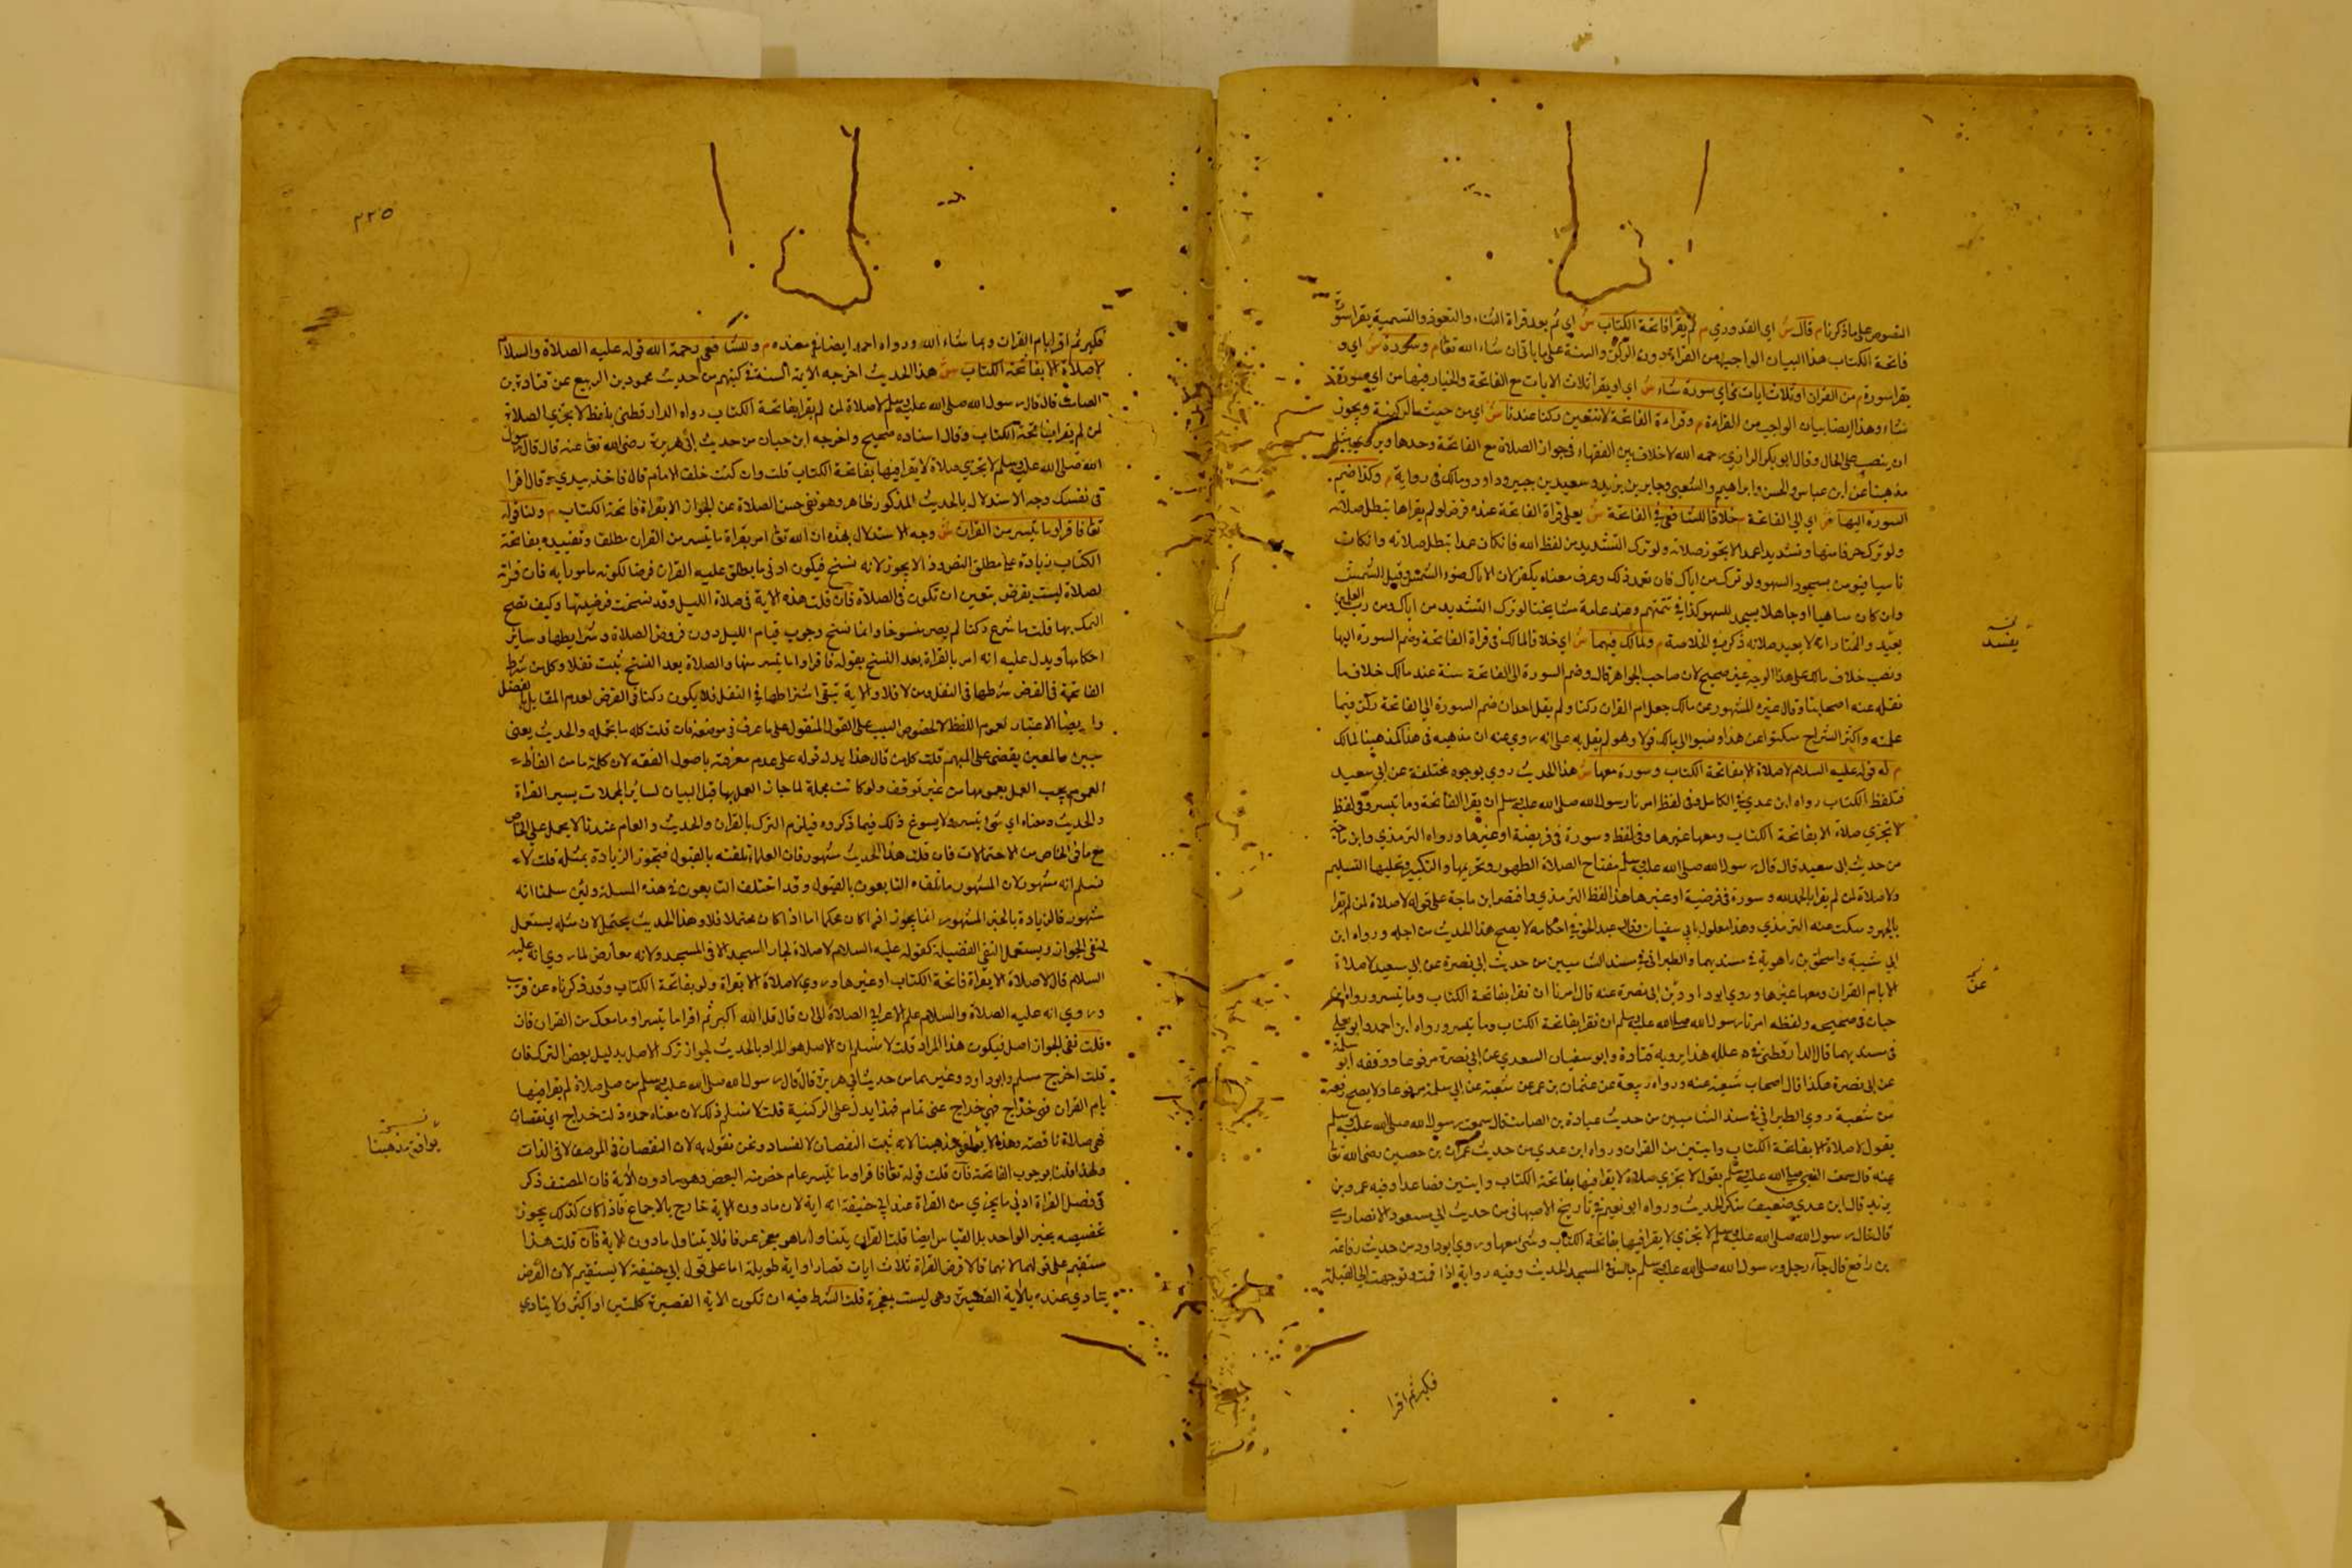 النصوص على ما ذكرنا م قال ش اي القدوري م ثم يقرا فاتحة الكتاب ش اي ثم بعد قراة الثناء والتعوذ والتسمية يقرا سورة
فاتحة الكتاب هذا البيان الواجب من القراءة دون الركن والسنة على ما ياتي ان شاء الله تعا م وسورة ش اي و
يقرا سورة م من القران او ثلاث ايات من اي سورة شاء ش اي او يقرا ثلاث الايات مع الفاتحة والخيار فيها من اي سورة
شاء وهذا ايضا بيان الواجب من القراءة م وقراءة الفاتحة لا تتعين ركنا عندنا ش اي من حيث الركنية ويجوز
ان ينصب على الحال وقال ابو بكر الرازي رحمه الله لا خلاف بين الفقهاء في جواز الصلاة مع الفاتحة وحدها
مذهبنا عن ابن عباس والحسن وابراهيم والشعبي وجابر بن يزيد وسعيد بن جبير وداود ومالك في رواية م وكذا ضم
السورة اليها ش اي الى الفاتحة م خلافا للشافعي في الفاتحة ش يعني قراة الفاتحة عنده فرض لو لم يقراها تبطل صلاته
ولو ترك حرفا منها وتشديدا عمدا لا يجوز صلاته ولو ترك التشديد من لفظ الله فان كان عمدا تبطل صلاته وان كان
ناسيا فيومن بسجود السهو ولو ترك من اياك فان تعمد ذلك وعرف معناه يكفر لان الاياك ضوء الشمس وقيل الشمس
وان كان ساهيا او جاهلا يسجد للسهو كذا في تتمتهم وعند عامة مشايخنا لو ترك التشديد من اياك ومن رب العلمين
يعيد والمختار انه لا يعيد صلاته ذكره في الخلاصة م ولمالك فيهما ش اي خلافا لمالك في قراة الفاتحة وضم السورة اليها
ونصب خلاف مالك على هذا الوجه غير صحيح لان صاحب الجواهر قال وضم السورة الى الفاتحة سنة عند مالك خلاف ما
نقله عنه اصحابنا وقال غيره المشهور عن مالك جعل ام القران ركنا ولم يقل احد ان ضم السورة الى الفاتحة ركن فيما
علمته واكثر الشراح سكتوا عن هذا ونسبوا الى مالك قولا وهو لم يقل به على انه روي عنه ان مذهبه في هذا كمذهبنا لمالك
م له قوله عليه السلام لا صلاة الا بفاتحة الكتاب وسورة معها ش هذا الحديث روي بوجوه مختلفة عن ابي سعيد
فبلفظ الكتاب رواه ابن عدي في الكامل وفي لفظ امرنا رسول الله صلى الله عليه وسلم ان نقرا الفاتحة وما تيسر وفي لفظ
لا تجزي صلاة الا بفاتحة الكتاب ومعها غيرها وفي لفظ وسورة في فريضة او غيرها ورواه الترمذي وابن ماجة
من حديث ابي سعيد قال قال رسول الله صلى الله عليه وسلم مفتاح الصلاة الطهور وتحريمها التكبير وتحليلها التسليم
ولا صلاة لمن لم يقرا بالحمد لله وسورة في فريضة او غيرها هذا لفظ الترمذي واقتصر ابن ماجة على قوله لا صلاة لمن لم يقرا
بالحمد وسكت عنه الترمذي وهذا معلول بابي سفيان وقال عبد الحق في احكامه لا يصح هذا الحديث من اجله ورواه ابن
ابي شيبة واسحق بن راهوية في مسنديهما والطبراني في مسند الشاميين من حديث ابي نضرة عن ابي سعيد لا صلاة
الا بام القران ومعها غيرها وروي ابو داود عن ابي نضرة عنه قال امرنا ان نقرا بفاتحة الكتاب وما تيسر ورواه ابن
حبان في صحيحه ولفظه امرنا رسول الله صلى الله عليه وسلم ان نقرا بفاتحة الكتاب وما تيسر ورواه ابن احمد وابو يعلى
في مسنديهما قال الدارقطني في علله هذا يرويه قتادة وابو سفيان السعدي عن ابي نضرة مرفوعا ووقفه ابو سلمة
عن ابي نضرة هكذا قال اصحاب شعبة عنه ورواه ربيعة عن عثمان بن عمر عن شعبة عن ابي سلمة مرفوعا ولا يصح رفعه
عن شعبة وروي الطبراني في مسند الشاميين من حديث عبادة بن الصامت قال سمعت رسول الله صلى الله عليه وسلم
يقول لا صلاة الا بفاتحة الكتاب وايتين من القران ورواه ابن عدي من حديث عمران بن حصين رضي الله تعا
عنه قال سمعت النبي صلى الله عليه وسلم يقول لا تجزي صلاة لا يقرا فيها بفاتحة الكتاب وايتين فصاعدا وفيه عمرو بن
يزيد قال ابن عدي ضعيف منكر الحديث ورواه ابو نعيم في تاريخ الاصبهاني من حديث ابي مسعود الانصاري
قال قال رسول الله صلى الله عليه وسلم لا تجزي لا يقرا فيها بفاتحة الكتاب وشي معها وروي ابو داود من حديث رفاعة
بن رافع قال جاء رجل ورسول الله صلى الله عليه وسلم جالس في المسجد الحديث وفيه رواية اذا قمت وتوجهت الى القبلة
فكبر ثم اقرا
يفسد
عن
٢٢٥
فكبر ثم اقرا بام القران وبما شاء الله ورواه احمد ايضا في مسنده م وللشافعي رحمة الله قوله عليه الصلاة والسلام
لا صلاة الا بفاتحة الكتاب ش هذا الحديث اخرجه الائمة الستة في كتبهم من حديث محمود بن الربيع عن عبادة بن
الصامت قال قال رسول الله صلى الله عليه وسلم لا صلاة لمن لم يقرا بفاتحة الكتاب رواه الدارقطني بلفظ لا تجزي الصلاة
لمن لم يقرا بفاتحة الكتاب وقال اسناده صحيح واخرجه ابن حبان من حديث ابي هريرة رضي الله تعا عنه قال قال رسول
الله صلى الله عليه وسلم لا تجزي صلاة لا يقرا فيها بفاتحة الكتاب قلت وان كنت خلف الامام قال فاخذ بيدي وقال اقرا
في نفسك وجه الاستدلال بالحديث المذكور ظاهر وهو نفي جنس الصلاة عن الجواز الا بقراة فاتحة الكتاب م ولنا قوله
تعا فاقراوا ما تيسر من القران ش وجه الاستدلال بهذه ان الله تعا امر بقراة ما تيسر من القران مطلقا وتقييده بفاتحة
الكتاب زيادة على مطلق النص وذا لا يجوز لانه نسخ فيكون ادنى ما يطلق عليه القران فرضا لكونه مامورا به فان قراته
لصلاة ليست بفرض يتعين ان تكون في الصلاة فان قلت هذه الاية في صلاة الليل وقد نسخت فرضيتها وكيف تصح
التمسك بها قلت ما شرع ركنا لم يصر منسوخا وانما نسخ وجوب قيام الليل دون فروض الصلاة وشرايطها وساير
احكامها ويدل عليه انه امر بالقراة بعد النسخ بقوله فاقراوا ما تيسر منها والصلاة بعد النسخ بقيت نفلا وكل من شرط
الفاتحة في الفرض شرطها في النفل ومن لا فلا والاية تبقي اشتراطها في النفل فلا يكون ركنا في الفرض لعدم القائل بالفصل
وايضا الاعتبار لعموم اللفظ لا لخصوص السبب على القول المنقول على ما عرف في موضعه فان قلت كلمة ما مجملة والحديث يعني
مبين والمعين يقضي على المبهم قلت كل من قال هذا يدل قوله على عدم معرفته باصول الفقه لان كلمة ما من الفاظ
العموم يجب العمل بعمومها من غير توقف ولو كانت مجملة لما جاز العمل بها قبل البيان لسائر المجملات بسير القراة
والحديث ومعناه اي شي تيسر ولا يسوغ ذلك فيما ذكروه فيلزم الترك بالقران والحديث والعام عندنا لا يحمل على الخاص
مع ما في الخاص من الاحتمالات فان قلت هذا الحديث مشهور فان العلماء تلقته بالقبول فيجوز الزيادة بمثله قلت لا
نسلم انه مشهور لان المشهور ما تلقاه التابعون بالقبول وقد اختلف التابعون في هذه المسلة ولئن سلمنا انه
مشهور فالزيادة بالخبر المشهور انما يجوز اذا كان محكما اما اذا كان محتملا فلا وهذا الحديث يحتمل لان مثله يستعمل
لنفي الجواز ويستعمل لنفي الفضيلة كقوله عليه السلام لا صلاة لجار المسجد الا في المسجد ولانه معارض لما روي انه عليه
السلام قال لا صلاة الا بقراة فاتحة الكتاب او غيرها وروي لا صلاة الا بقراة ولو بفاتحة الكتاب وقد ذكرناه عن قريب
وروي انه عليه الصلاة والسلام علم الاعرابي الصلاة الى ان قال قل الله اكبر ثم اقرا ما تيسر او ما معك من القران فان
قلت نفي الجواز اصل فيكون هذا المراد قلت لا نسلم ان الاصل هو المراد بالحديث لجواز ترك الاصل بدليل بعض الترك فان
قلت اخرج مسلم وابو داود وغيرهما من حديث ابي هريرة قال قال رسول الله صلى الله عليه وسلم من صلى صلاة لم يقرا فيها
بام القران فهي خداج فهي خداج غير تمام فهذا يدل على الركنية قلت لا نسلم ذلك لان معناه ذات خداج اي نقصان
فهي صلاة ناقصة وهذا لا مذهبنا لانه يثبت النقصان لا الفساد ونحن نقول به لان النقصان في الوصف لا في الذات
ولهذا قلنا بوجوب الفاتحة فان قلت قوله تعا فاقراوا ما تيسر عام خص منه البعض وهو ما دون الاية فان المصنف ذكر
في فصل القراة ادنى ما يجزي من القراة عند ابي حنيفة انه اية لان ما دون الاية خارج بالاجماع فاذا كان كذلك يجوز
تخصيصه بخبر الواحد بل القياس ايضا قلت القران يتناول ما هو معجز عرفا فلا يتناول ما دون الاية فان قلت هذا
مستقيم على قولهما لانهما قالا فرض القراة ثلاث ايات قصار او اية طويلة اما على قول ابي حنيفة لا يستقيم لان الفرض
يتادي عنده بالاية القصيرة وهي ليست بمعجزة قلت الشرط فيه ان تكون الاية القصيرة كلمتين او اكثر ولا يتادي
يوافق مذهبنا